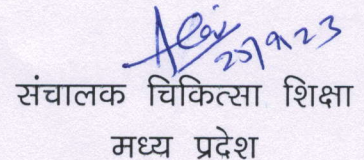 25/9/23
संचालक चिकित्सा शिक्षा
मध्य प्रदेश